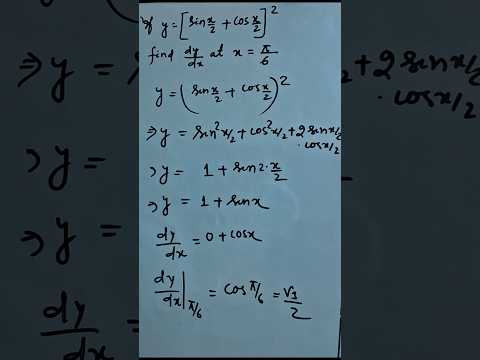 If y = [sin x/2 + cos x/2]²
find dy/dx at x = π/6
y = (sin x/2 + cos x/2)²
⇒ y = sin² x/2 + cos² x/2 + 2 sin x/2 · cos x/2
⇒ y = 1 + sin 2·x/2
⇒ y = 1 + sin x
dy/dx = 0 + cos x
dy/dx |π/6 = cos π/6 = √3/2